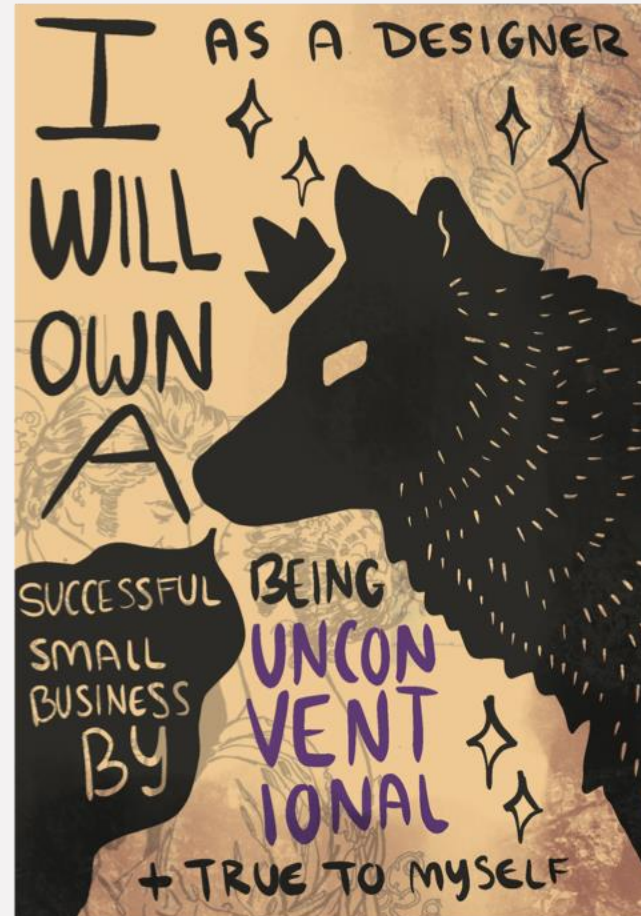 AS A DESIGNER
I
WILL
OWN
A
SUCCESSFUL
SMALL
BUSINESS
BY
BEING
UNCON
VENT
IONAL
+ TRUE TO MYSELF